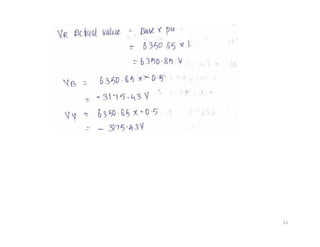 VR Actual value = Base x pu
= 6350.85 x 1
= 6350.85 V
VB = 6350.85 x -0.5
= -3175.43 V
VY = 6350.85 x -0.5
= - 3175.43V